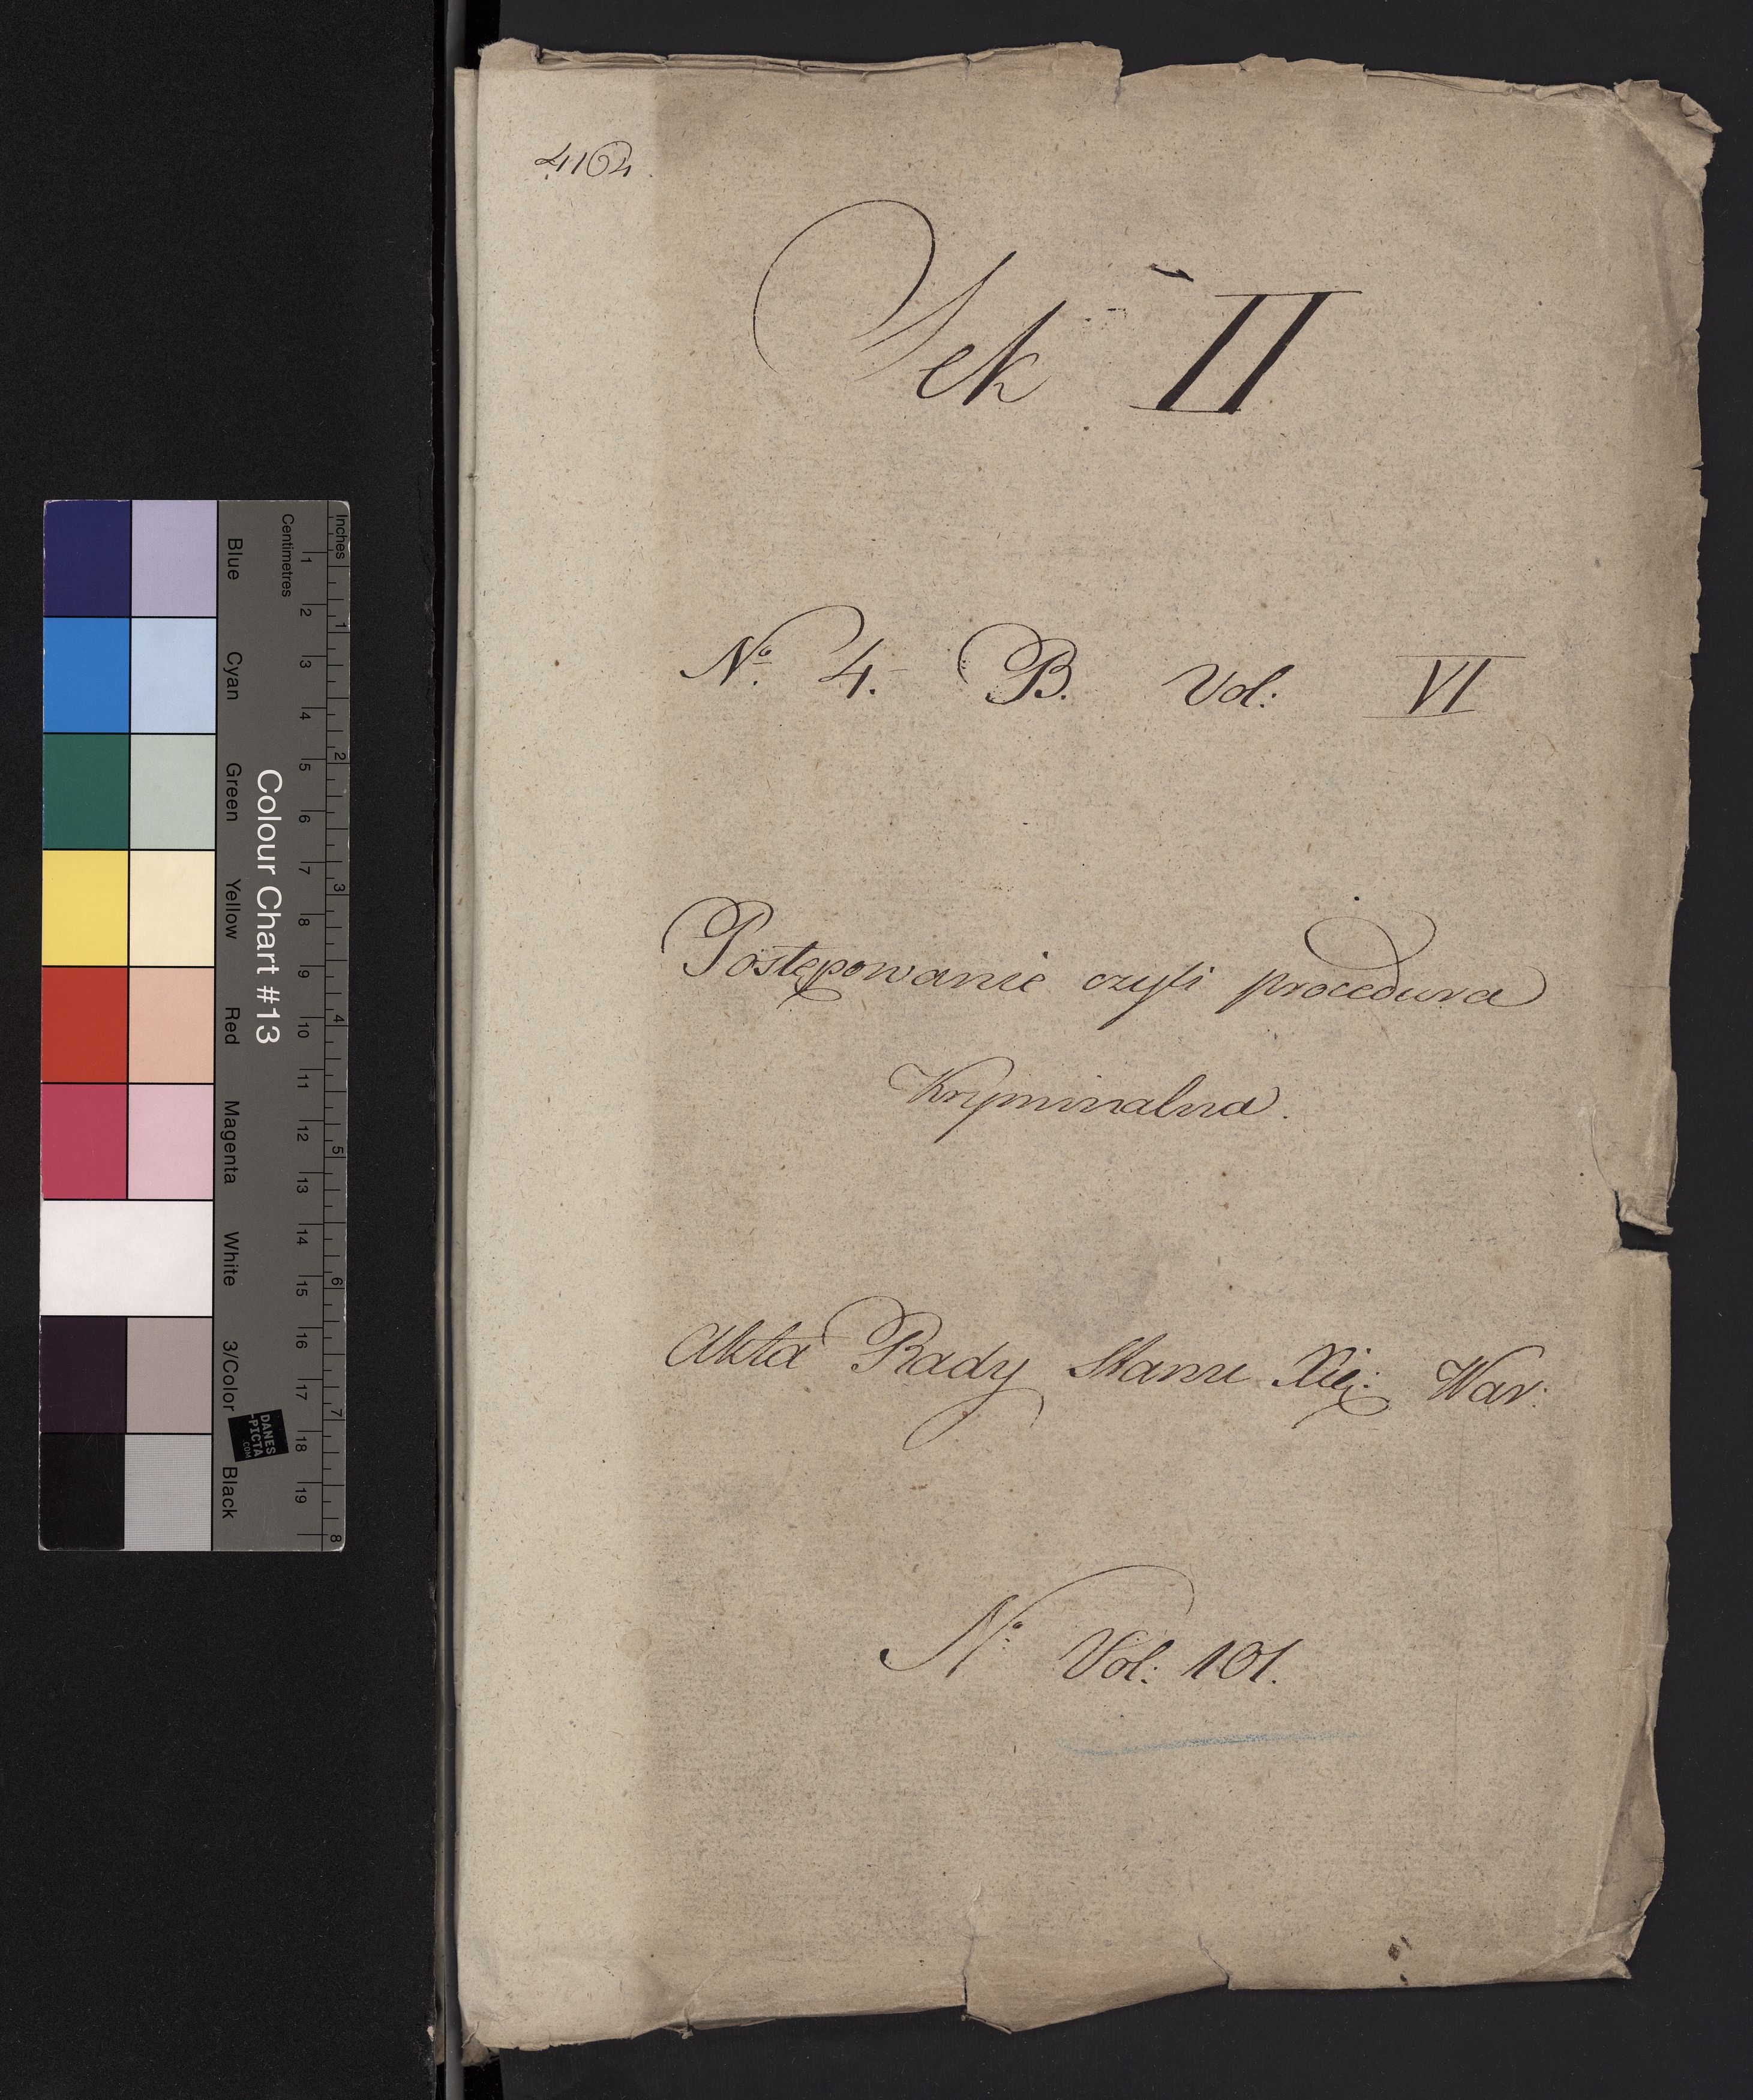 4164.
Sek II
Nº 4. B. Vol: VI
Postępowanie czyli procedura
Kryminalna.
Akta Rady Stanu Xię: War:
Nº Vol: 101.
Inches
Centimetres
1 2 3 4 5 6 7 8 9 10 11 12 13 14 15 16 17 18 19
1 2 3 4 5 6 7 8
Colour Chart #13
Blue Cyan Green Yellow Red Magenta White 3/Color Black
DANES
-PICTA
.COM